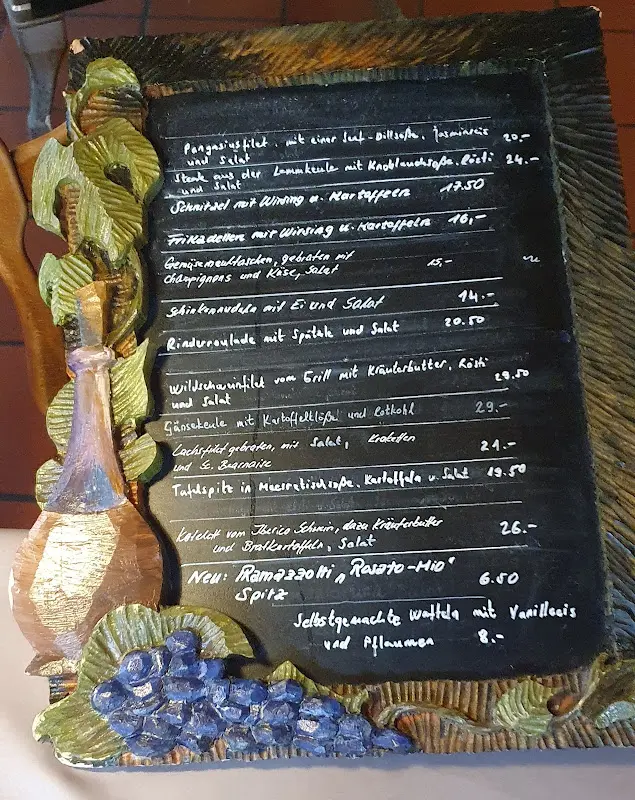 Pangasiusfilet. mit einer Senf-Dillsoße. Jasminreis 20.-
und Salat
Steak aus der Lammkeule mit Knoblauchsoße. Rösti 24.-
und Salat
Schnitzel mit Wirsing u. Kartoffeln 17.50
Frikadellen mit Wirsing u. Kartoffeln 16,-
Gemüsemaultaschen, gebraten mit 15,-
Champignons und Käse, Salat
Schinkennudeln mit Ei und Salat 14.-
Rinderroulade mit Spätzle und Salat 20.50
Wildschweinfilet vom Grill mit Kräuterbutter, Rösti
und Salat 28.50
Gänsekeule mit Kartoffelklößel und Rotkohl 29.-
Lachsfilet gebraten, mit Salat, Kroketten 21.-
und Sc. Bearnaise
Tafelspitz in Meerrettichsoße. Kartoffeln u. Salat 19.50
Kotelett vom Iberico Schwein, dazu Kräuterbutter
und Bratkartoffeln, Salat 26.-
Neu: Ramazzotti „Rosato-Mio" 6.50
Spitz
Selbstgemachte Waffeln mit Vanilleeis
und Pflaumen 8.-